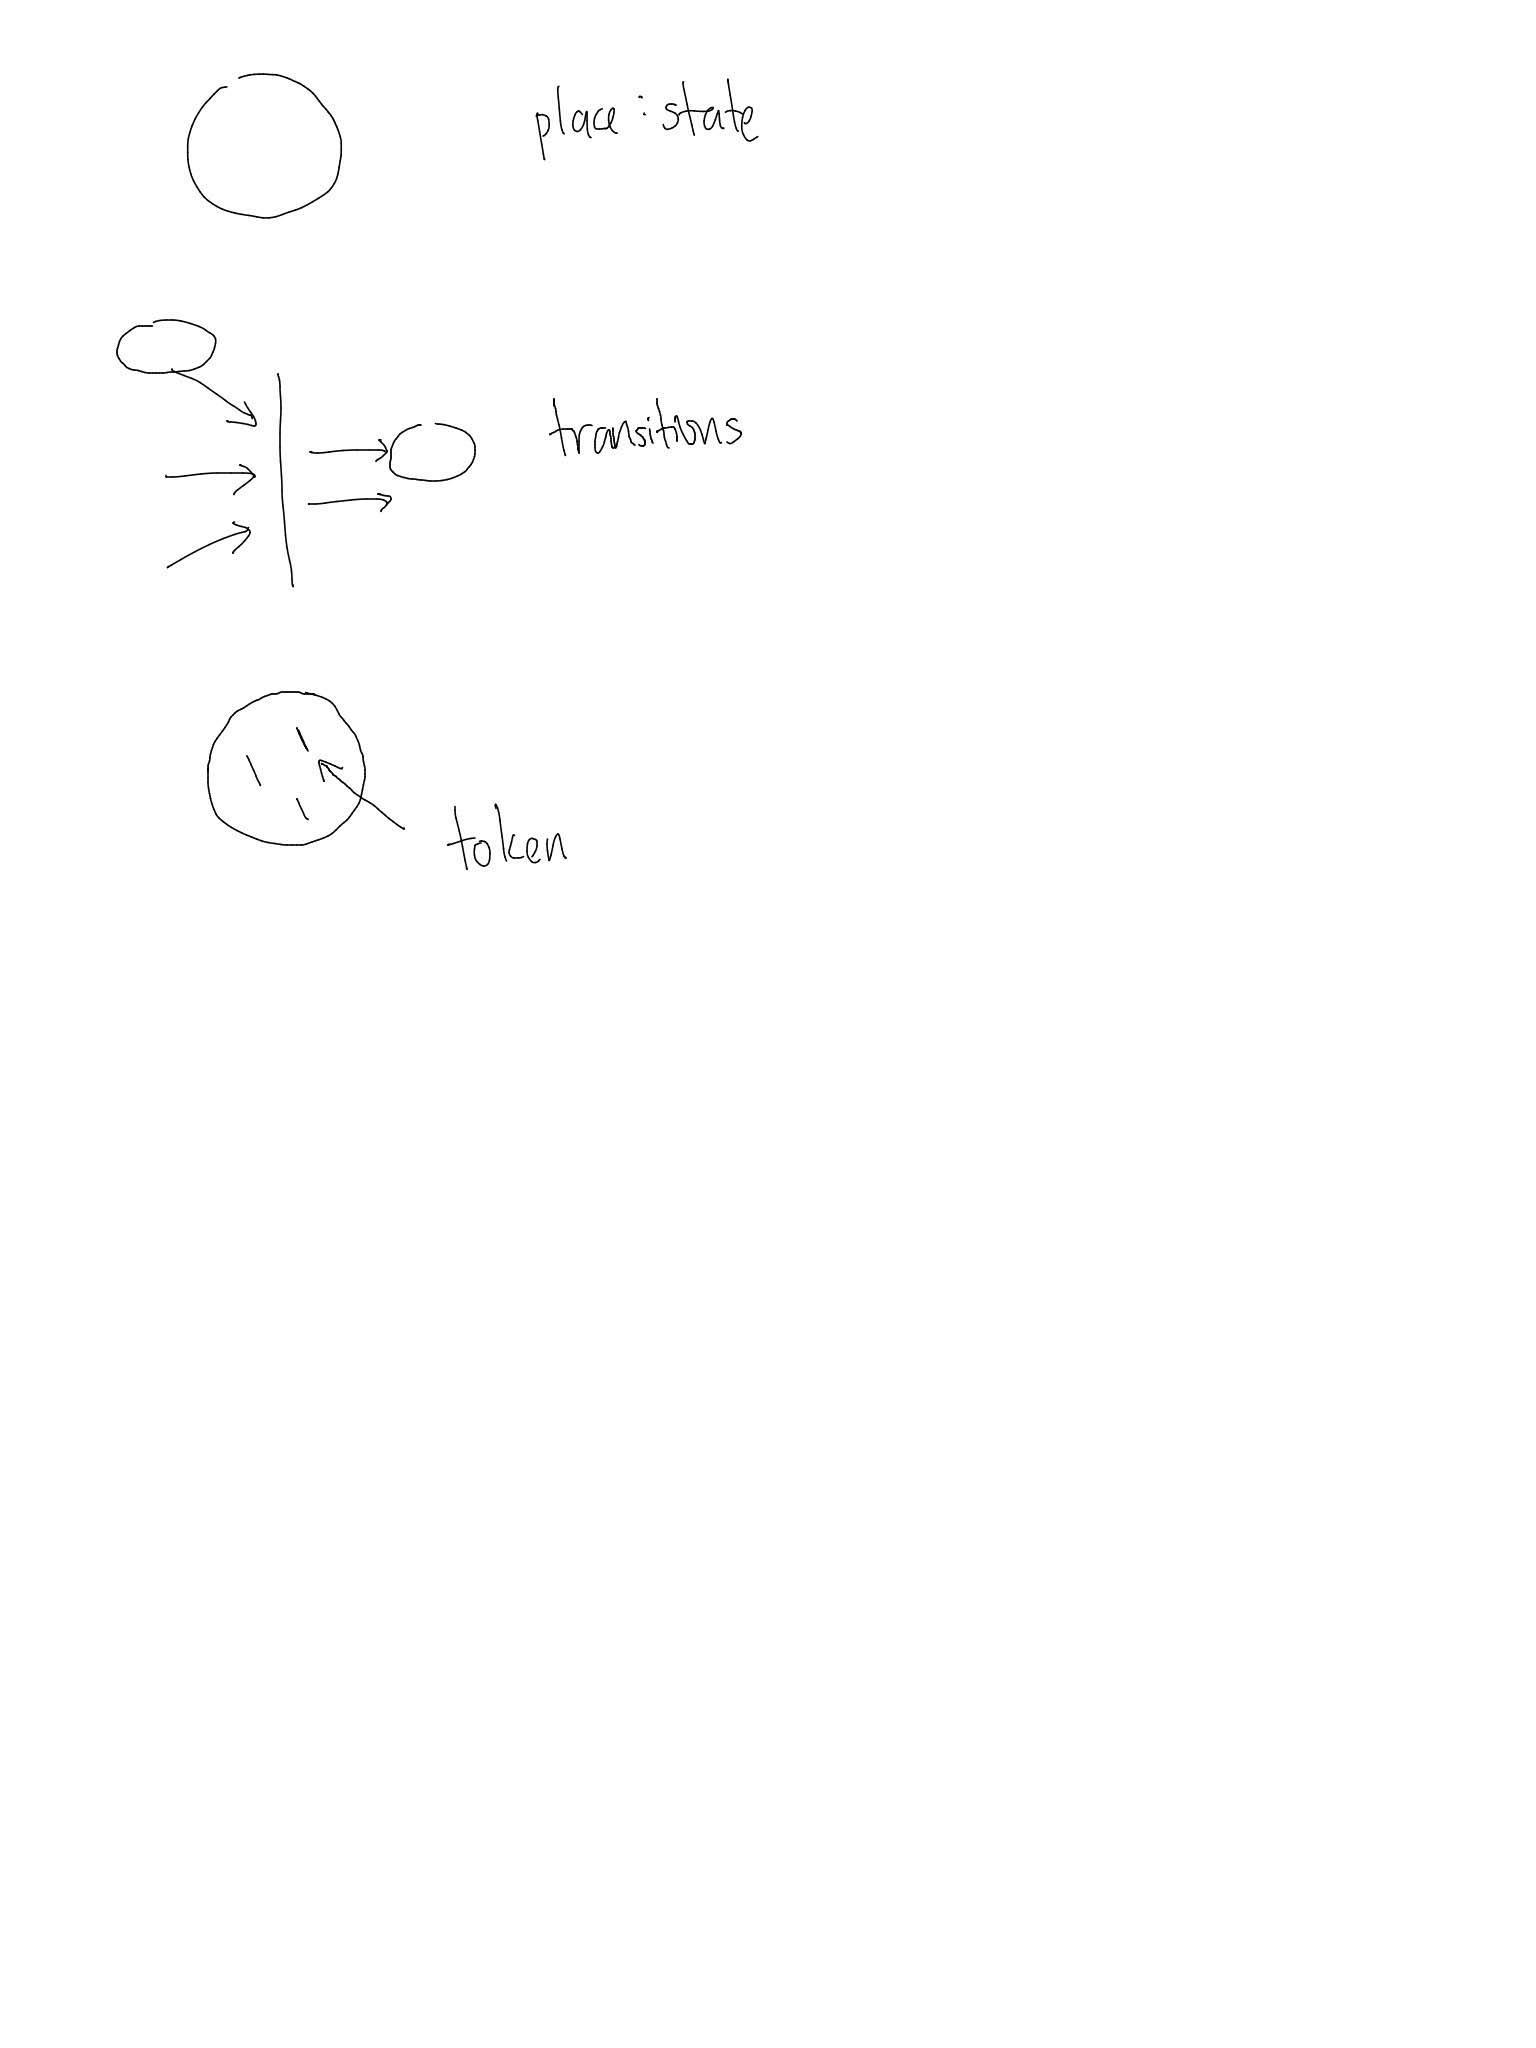 place : state
transitions
token